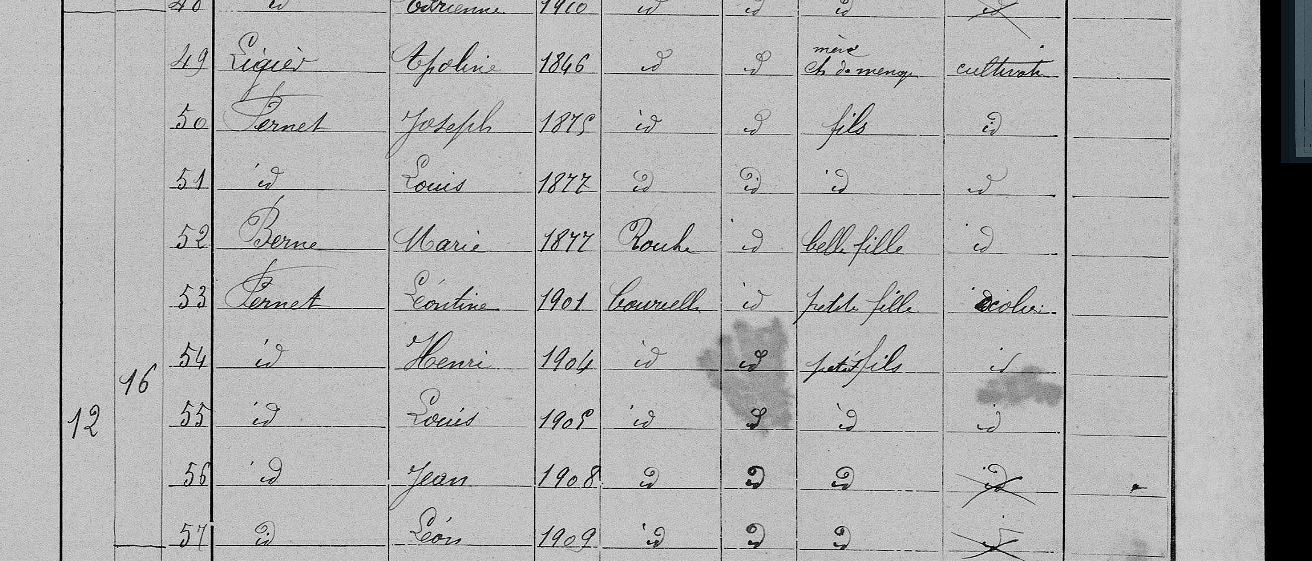 48 id Adrienne 1910 id id id id
49 Ligier Apoline 1846 id id mère
ch de menage cultivat
50 Pernet Joseph 1875 id id fils id
51 id Louis 1877 id id id id
52 Berne Marie 1877 id belle fille id
53 Pernet Léontine 1901 id petite fille écolier
54 id Henri 1904 id id petit fils id
16
55 id Louis 1905 id id id id
12
56 id Jean 1908 id id id id
57 id Léon 1909 id id id id